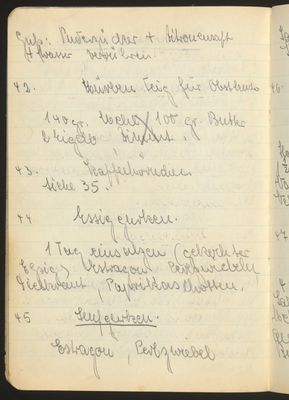 Guß: Puderzucker + Zitronensaft
+ Wasser verrühren.
42. Mürben Teig für Obstkuchen
140 gr. 100 gr. Butter
2 Eigelb Zimmt.
43.
siehe 35.
44 Essiggurken.
1 Tag einsalzen (gekochter
Essig) Estragon Perlzwiebeln,
Dillkraut, Paprikaschotten,
45 Senfgurken.
Estragon, Perlzwiebel